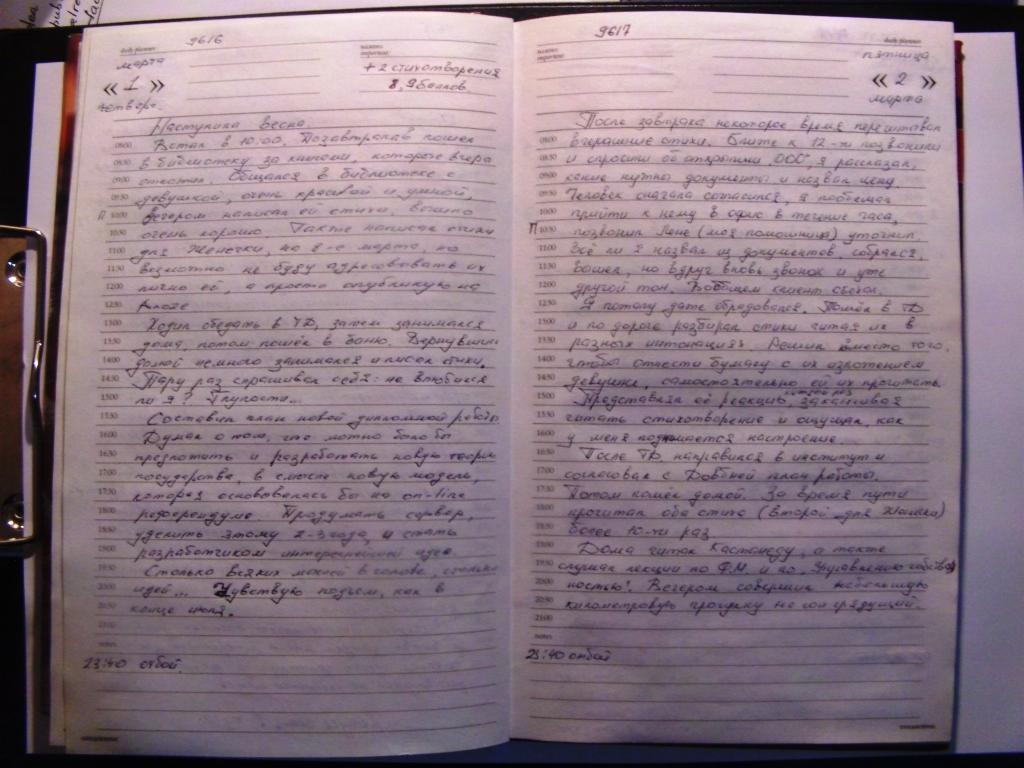 9616
марта
« 1 »
четверг
+ 2 стихотворения
8,9 баллов.
Наступила весна.
Встал в 10:00. Позавтракав пошёл
в библиотеку за книгами, которые вчера
отложил. Общался в библиотеке с
девушкой, очень красивой и умной,
вечером написал ей стихи. Вышло
очень хорошо. Также написал стихи
для Женечки, на 8-е марта, но
возможно не буду адресовать их
лично ей, а просто опубликую на
Ходил обедать в ТД, затем занимался
дома, потом пошёл в баню. Вернувшись
домой немного занимался и писал стихи.
Пару раз спрашивал себя: не влюбился
ли я? Глупости...
Составил план новой дипломной работы
Думал о том, что можно было бы
предложить и разработать новую теорию
государства, в смысле новую модель,
которая основовалась бы на on-line
референдуме. Продумать сервер,
уделить этому 2-3 года и стать
разработчиком интереснейшей идеи.
Столько всяких мыслей в голове, столько
идей... Чувствую подъём, как в
конце июля.
23:40 отбой.
9617
пятница
« 2 »
марта
После завтрака некоторое время перечитывал
вчерашние стихи. Ближе к 12-ти позвонили
и спросили об открытии ООО. Я рассказал,
какие нужны документы и назвал цену.
Человек сначала согласился, я пообещал
прийти к нему в офис в течение часа,
позвонил Лене (моя помощница) уточнил
всё ли я назвал из документов, собрался,
вышел, но вдруг вновь звонок и уже
другой тон. Вообщем клиент съехал.
Я потому даже обрадовался. Пошёл в ТД
и по дороге разбирал стихи читая их в
разных интонациях. Решил вместо того,
чтобы отнести бумагу с их изложением
девушке, самостоятельно ей их прочитать.
Представлял её реакцию, заканчивая
читать стихотворение и ощущал, как
у меня поднимается настроение.
После ТД направился в институт и
согласовал с план работы.
Потом пошёл домой. За время пути
прочитал оба стиха (второй для )
более 10-ти раз
Дома читал Кастанеду, а также
слушал лекции по Ф.М. и по "Управлению собствен-
ностью". Вечером совершил небольшую
километровую прогулку на сон грядущий.
23:40 отбой